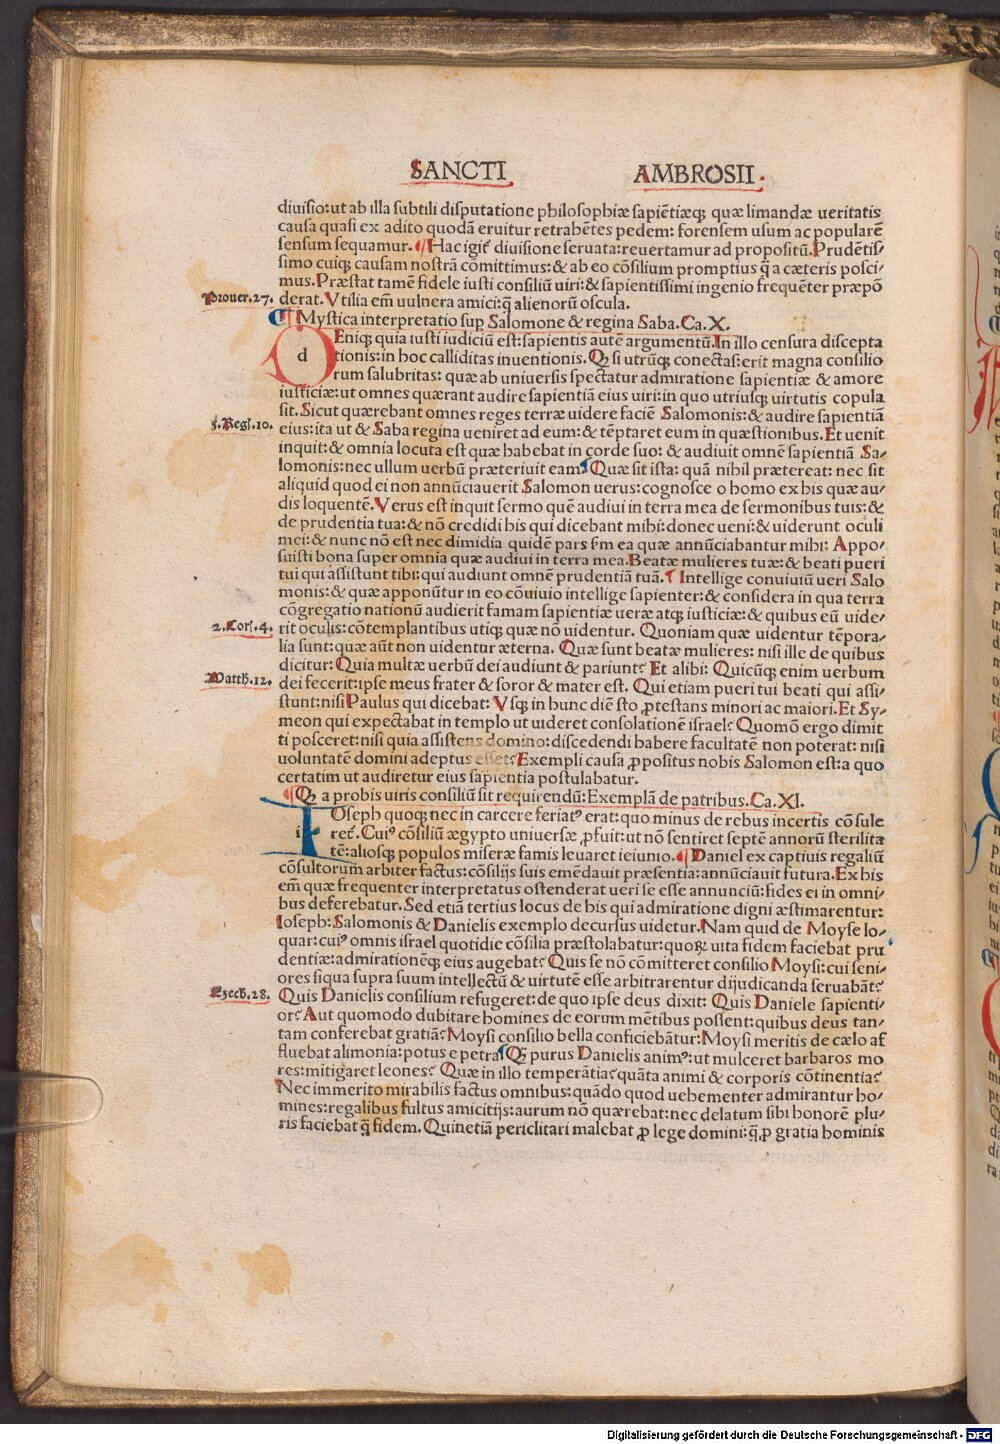 SANCTI AMBROSII.
diuisio:ut ab illa subtili disputatione philosophiæ sapiẽtiæq; quæ limandæ ueritatis
causa quasi ex adito quodã eruitur retrahẽtes pedem: forensem usum ac popularẽ
sensum sequamur. ¶Hac igiť diuisione seruata:reuertamur ad propositũ.Prudẽtis/
simo cuiq; causam nostrã cõmittimus:& ab eo cõsilium promptius q̃ a cæteris posci/
mus.Præstat tamẽ fidele iusti consiliũ uiri:& sapientissimi ingenio frequẽter præpõ
Prouer.27. derat.Vtilia em̃ uulnera amici:q̃ alienorũ oscula.
¶Mystica interpretatio sup Salomone & regina Saba.Ca.X.
d Eniq; quia iusti iudiciũ est:sapientis autẽ argumentũ.In illo censura discepta
tionis:in hoc calliditas inuentionis.Q; si utrũq; conectas:erit magna consilio
rum salubritas: quæ ab uniuersis spectatur admiratione sapientiæ & amore
iusticiæ:ut omnes quærant audire sapientiã eius uiri:in quo utriusq; uirtutis copula
sit.Sicut quærebant omnes reges terræ uidere faciẽ Salomonis:& audire sapientiã
3.Reg.10. eius:ita ut & Saba regina ueniret ad eum:& tẽptaret eum in quæstionibus.Et uenit
inquit:& omnia locuta est quæ habebat in corde suo: & audiuit omnẽ sapientiã Sa/
lomonis:nec ullum uerbũ præteriuit eam ¶Quæ sit ista: quã nihil prætereat: nec sit
aliquid quod ei non annũciauerit Salomon uerus:cognosce o homo ex his quæ au/
dis loquentẽ.Verus est inquit sermo quẽ audiui in terra mea de sermonibus tuis:&
de prudentia tua:& nõ credidi his qui dicebant mihi:donec ueni:& uiderunt oculi
mei:& nunc nõ est nec dimidia quidẽ pars ẜm ea quæ annũciabantur mihi: Appo/
suisti bona super omnia quæ audiui in terra mea.Beatæ mulieres tuæ:& beati pueri
tui qui assistunt tibi:qui audiunt omnẽ prudentiã tuã.¶Intellige conuiuiũ ueri Salo
monis:& quæ apponũtur in eo cõuiuio intellige sapienter:& considera in qua terra
cõgregatio nationũ audierit famam sapientiæ ueræ atq; iusticiæ:& quibus eũ uide/
2.Cor.4. rit oculis:cõtemplantibus utiq; quæ nõ uidentur. Quoniam quæ uidentur tẽpora/
lia sunt:quæ aũt non uidentur æterna. Quæ sunt beatæ mulieres: nisi ille de quibus
dicitur: Quia multæ uerbũ dei audiunt & pariunt? Et alibi: Quicũq; enim uerbum
Matth.12. dei fecerit:ipse meus frater & soror & mater est. Qui etiam pueri tui beati qui assi/
stunt:nisi Paulus qui dicebat: Vsq; in hunc diẽ sto ꝓtestans minori ac maiori.Et Sy/
meon qui expectabat in templo ut uideret consolationẽ israel? Quomõ ergo dimit
ti posceret:nisi quia assistens domino:discedendi habere facultatẽ non poterat: nisi
uoluntatẽ domini adeptus esset?Exempli causa ꝓpositus nobis Salomon est:a quo
certatim ut audiretur eius sapientia postulabatur.
¶Q; a probis uiris consiliũ sit requirendũ:Exemplã de patribus.Ca.XI.
i Oseph quoq; nec in carcere feriatꝰ erat:quo minus de rebus incertis cõsule
reť.Cuiꝰ cõsiliũ ægypto uniuersæ ꝓfuit:ut nõ sentiret septẽ annorũ sterilita
tẽ:aliosq; populos miseræ famis leuaret ieiunio.¶Daniel ex captiuis regaliũ
cõsultorum arbiter factus:cõsilijs suis emẽdauit præsentia:annũciauit futura.Ex his
em̃ quæ frequenter interpretatus ostenderat ueri se esse annunciũ:fides ei in omni/
bus deferebatur.Sed etiã tertius locus de his qui admiratione digni æstimarentur:
Ioseph:Salomonis & Danielis exemplo decursus uidetur.Nam quid de Moyse lo/
quar:cuiꝰ omnis israel quotidie cõsilia præstolabatur:quoꝝ uita fidem faciebat pru
dentiæ:admirationẽq; eius augebat? Quis se nõ cõmitteret consilio Moysi:cui seni/
ores siqua supra suum intellectũ & uirtutẽ esse arbitrarentur dijudicanda seruabãt?
Ezech.28. Quis Danielis consilium refugeret:de quo ipse deus dixit: Quis Daniele sapienti/
or?Aut quomodo dubitare homines de eorum mẽtibus possent:quibus deus tan/
tam conferebat gratiã?Moysi consilio bella conficiebãtur:Moysi meritis de cælo af
fluebat alimonia:potus e petra ¶Q; purus Danielis animꝰ:ut mulceret barbaros mo
res:mitigaret leones? Quæ in illo temperãtia?quãta animi & corporis cõtinentia?
Nec immerito mirabilis factus omnibus:quãdo quod uehementer admirantur ho/
mines:regalibus fultus amicitijs:aurum nõ quærebat:nec delatum sibi honorẽ plu/
ris faciebat q̃ fidem. Quinetiã periclitari malebat ꝓ lege domini:q̃ ꝓ gratia hominis
Digitalisierung gefördert durch die Deutsche Forschungsgemeinschaft - DFG